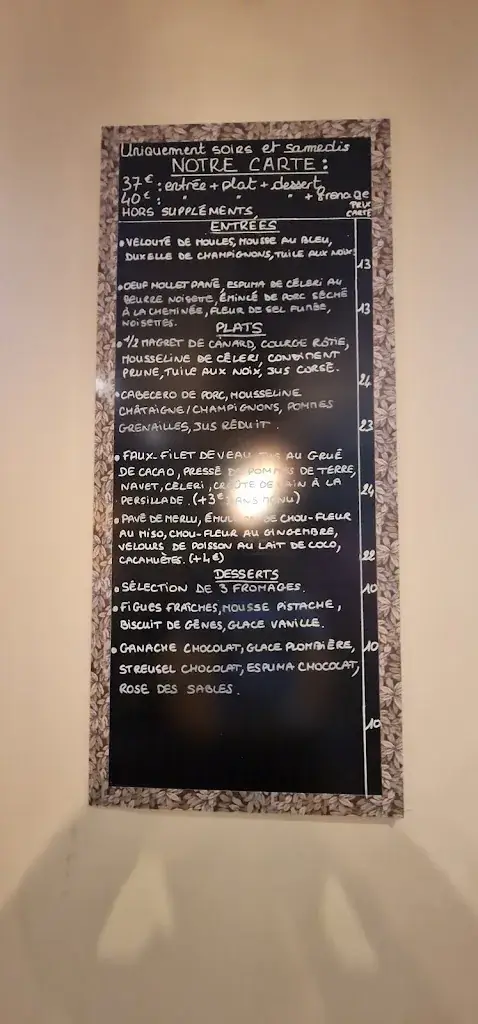 Uniquement soirs et samedis
NOTRE CARTE:
37€: entrée + plat + dessert
40€: " " " + fromage
HORS SUPPLÉMENTS
PRIX CARTE
ENTRÉES
• VELOUTÉ DE MOULES, MOUSSE AU BLEU,
DUXELLE DE CHAMPIGNONS, TUILE AUX NOIX.
13
• OEUF MOLLET PANÉ, ESPUMA DE CÉLERI AU
BEURRE NOISETTE, ÉMINCÉ DE PORC SÉCHÉ
À LA CHEMINÉE, FLEUR DE SEL FUMÉE,
13
NOISETTES.
PLATS
• 1/2 MAGRET DE CANARD, COURGE RÔTIE,
MOUSSELINE DE CÉLERI, CONDIMENT
PRUNE, TUILE AUX NOIX, JUS CORSÉ.
24
• CABECERO DE PORC, MOUSSELINE
CHÂTAIGNE/CHAMPIGNONS, POMMES
GRENAILLES, JUS RÉDUIT.
23
• FAUX-FILET DE VEAU, AU GRUÉ
DE CACAO, PRESSÉ DE POMMES DE TERRE,
NAVET, CÉLERI, CROÛTE DE PAIN À LA
PERSILLADE. (+3€ DANS MENU)
24
• PAVÉ DE MERLU, ÉMULSION DE CHOU-FLEUR
AU MISO, CHOU-FLEUR AU GINGEMBRE,
VELOURS DE POISSON AU LAIT DE COCO,
CACAHUÈTES. (+4€)
22
DESSERTS
• SÉLECTION DE 3 FROMAGES.
10
• FIGUES FRAÎCHES, MOUSSE PISTACHE,
BISCUIT DE GÊNES, GLACE VANILLE.
• GANACHE CHOCOLAT, GLACE PLOMBIÈRE,
10
STREUSEL CHOCOLAT, ESPUMA CHOCOLAT,
ROSE DES SABLES.
10